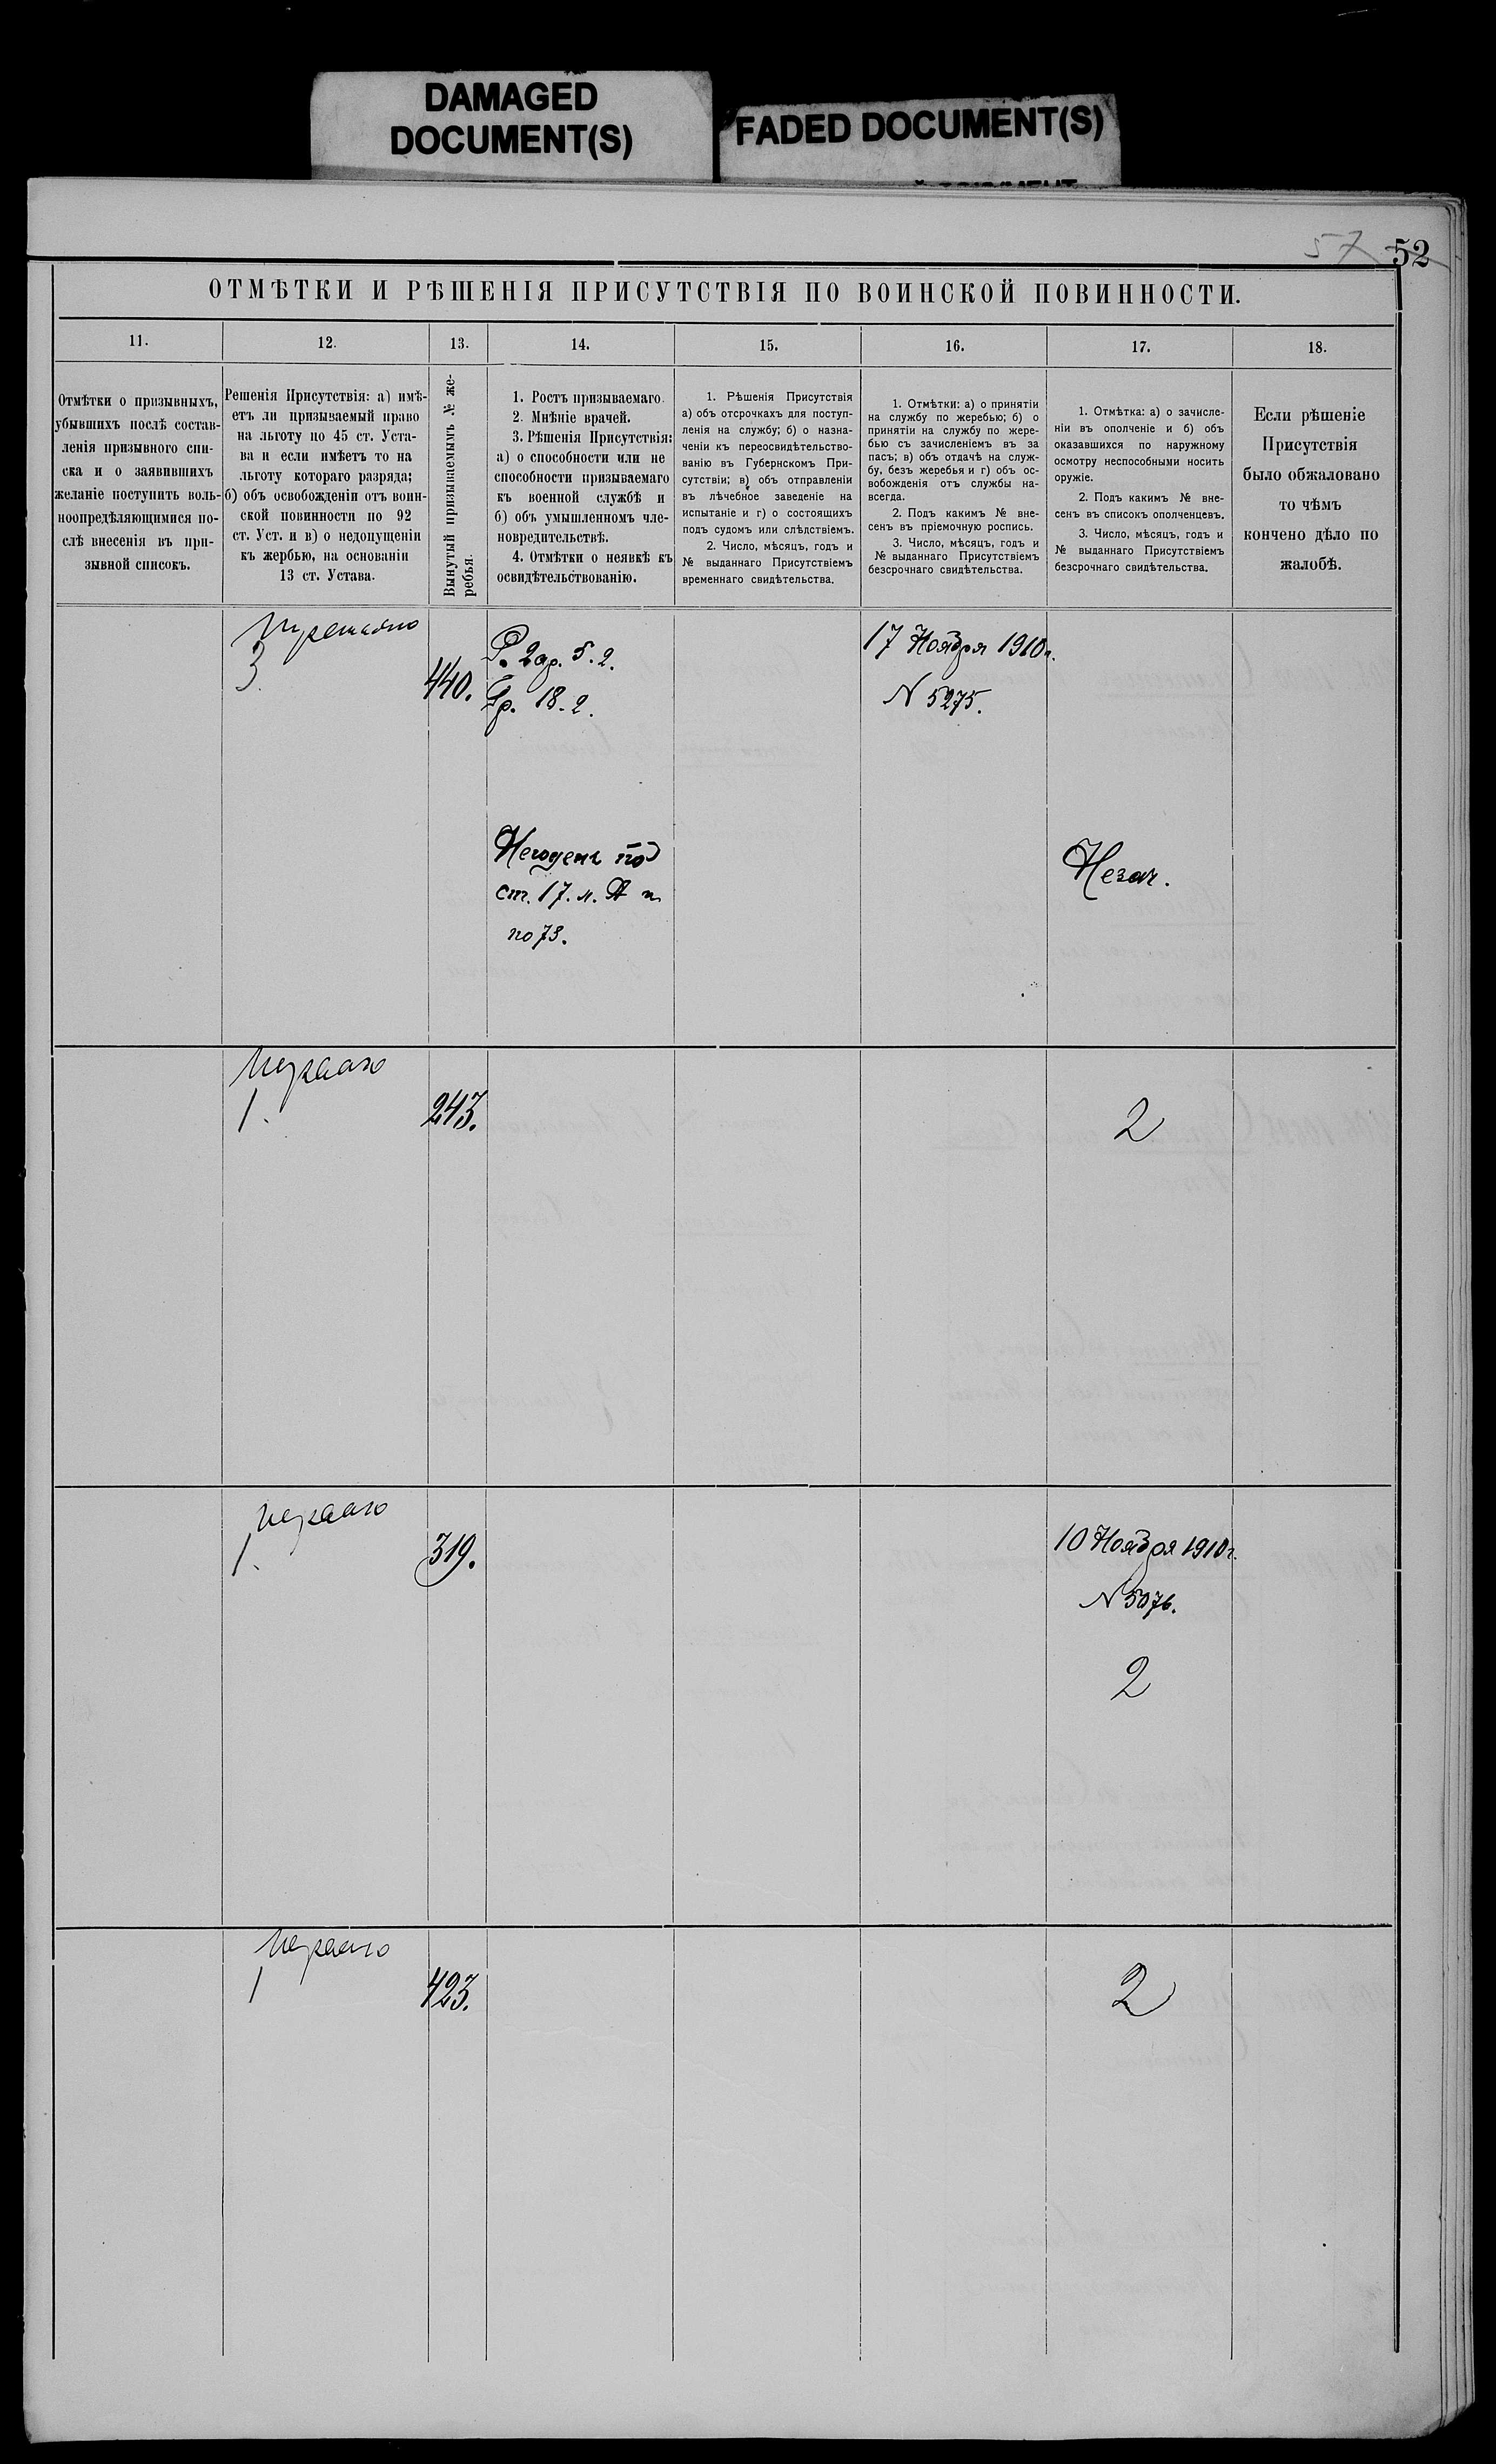 DAMAGED
DOCUMENT(S)
FADED DOCUMENT(S)
57 52
ОТМѢТКИ И РѢШЕНІЯ ПРИСУТСТВІЯ ПО ВОИНСКОЙ ПОВИННОСТИ.
11.
12.
13.
14.
15.
16.
17.
18.
Отмѣтки о призывныхъ,
убывшихъ послѣ состав-
ленія призывного спи-
ска и о заявившихъ
желаніе поступить воль-
ноопредѣляющимися по-
слѣ внесенія въ при-
зывной списокъ.
Решенія Присутствія: а) имѣ-
етъ ли призываемый право
на льготу по 45 ст. Уста-
ва и если имѣетъ то на
льготу котораго разряда;
б) объ освобожденіи отъ воин-
ской повинности по 92
ст. Уст. и в) о недопущеніи
къ жербью, на основаніи
13 ст. Устава.
Вынутый призываемымъ № же-
ребья.
1. Ростъ призываемаго.
2. Мнѣніе врачей.
3. Рѣшенія Присутствія:
а) о способности или не
способности призываемаго
къ военной службѣ и
б) объ умышленномъ чле-
новредительствѣ.
4. Отмѣтки о неявкѣ къ
освидѣтельствованію.
1. Рѣшенія Присутствія
а) объ отсрочкахъ для поступ-
ленія на службу; б) о назна-
ченіи къ переосвидѣтельство-
ванію въ Губернскомъ При-
сутствіи; в) объ отправленіи
въ лѣчебное заведеніе на
испытаніе и г) о состоящихъ
подъ судомъ или слѣдствіемъ.
2. Число, мѣсяцъ, годъ и
№ выданнаго Присутствіемъ
временнаго свидѣтельства.
1. Отмѣтки: а) о принятіи
на службу по жеребью; б) о
принятіи на службу по жере-
бью съ зачисленіемъ въ за
пасъ; в) объ отдачѣ на служ-
бу, безъ жеребья и г) объ ос-
вобожденія отъ службы на-
всегда.
2. Подъ какимъ № вне-
сенъ въ пріемочную роспись.
3. Число, мѣсяцъ, годъ и
№ выданнаго Присутствіемъ
безсрочнаго свидѣтельства.
1. Отмѣтка: а) о зачисле-
ніи въ ополченіе и б) объ
оказавшихся по наружному
осмотру неспособными носить
оружіе.
2. Подъ какимъ № вне-
сенъ въ списокъ ополченцевъ.
3. Число, мѣсяцъ, годъ и
№ выданнаго Присутствіемъ
безсрочнаго свидѣтельства.
Если рѣшеніе
Присутствія
было обжаловано
то чѣмъ
кончено дѣло по
жалобѣ.
3
440.
Р. 2ар. 5. 2.
Гр. 18. 2.
17 Ноября 1910г.
N 5275.
Негоденъ по
ст. 17. л. А и
по 73.
Незач.
перваго
1.
243.
2
перваго
1.
319.
10 Ноября 1910г.
N 5076.
2
перваго
1
423.
2